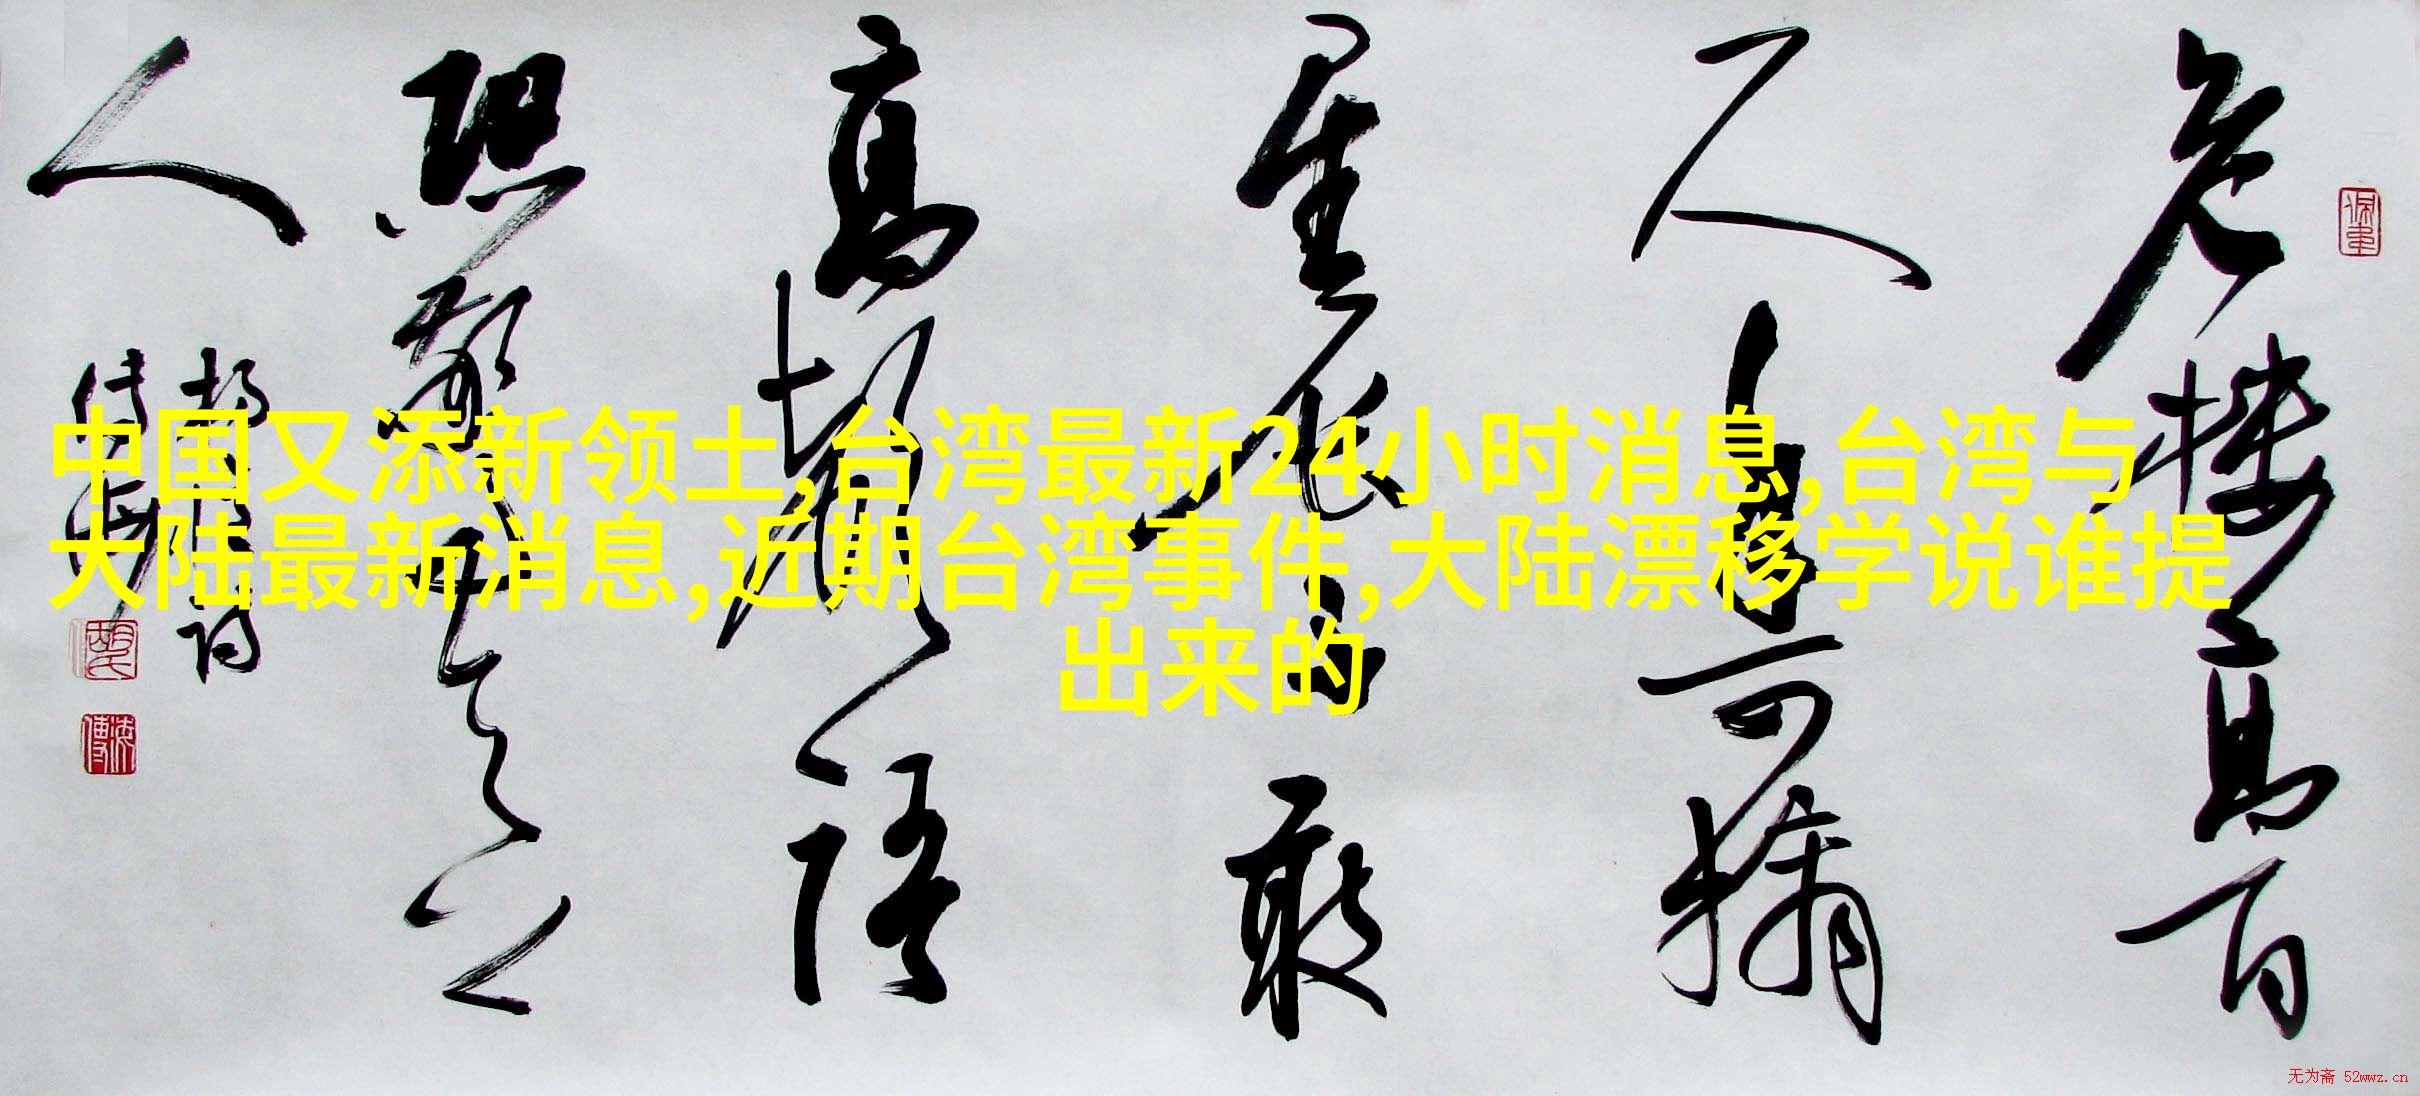 中国又添新领土,台湾最新24小时消息,台湾与
大陆最新消息,近期台湾事件,大陆漂移学说谁提
出来的
危楼高百
尺手可摘
星辰不敢
高声语
恐惊天上
人
无为斋 52wwz.cn